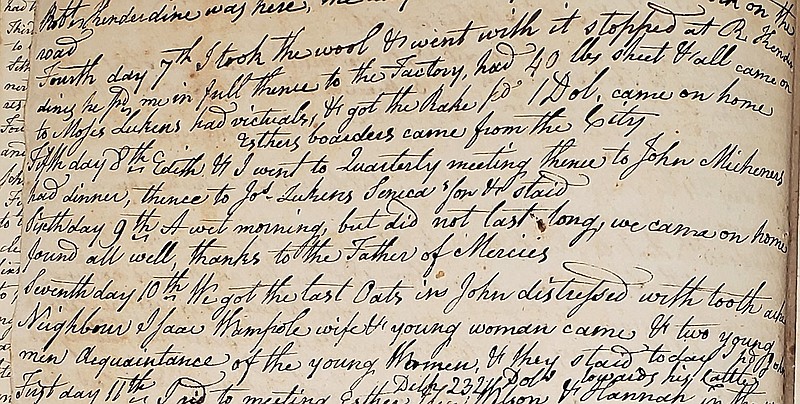 Robt Kenderdine was here, the on the
road
Fourth day 7th I took the wool & went with it stopped at R. Kender
dines he pd. me in full thence to the Factory, had 40 lbs sheet & all came on
to Moses Lukens had victuals, & got the Rake pd. 1 Dol, came on home
Esthers boarders came from the City
Fifth day 8th Edith & I went to Quarterly meeting thence to John Micheners
had dinner, thence to Jos. Lukens Seneca's son & staid
Sixth day 9th A wet morning, but did not last long, we came on home
found all well, thanks to the Father of Mercies
Seventh day 10th We got the last Oats in John distressed with tooth ache
Neighbour Isaac Wampole wife & young woman came & two young
men acquaintance of the young Women, & they staid today pd Jos
Delp 23,24 Dols towards his cattle
First day 11th I rid to meeting Esther Wilson & Hannah in the